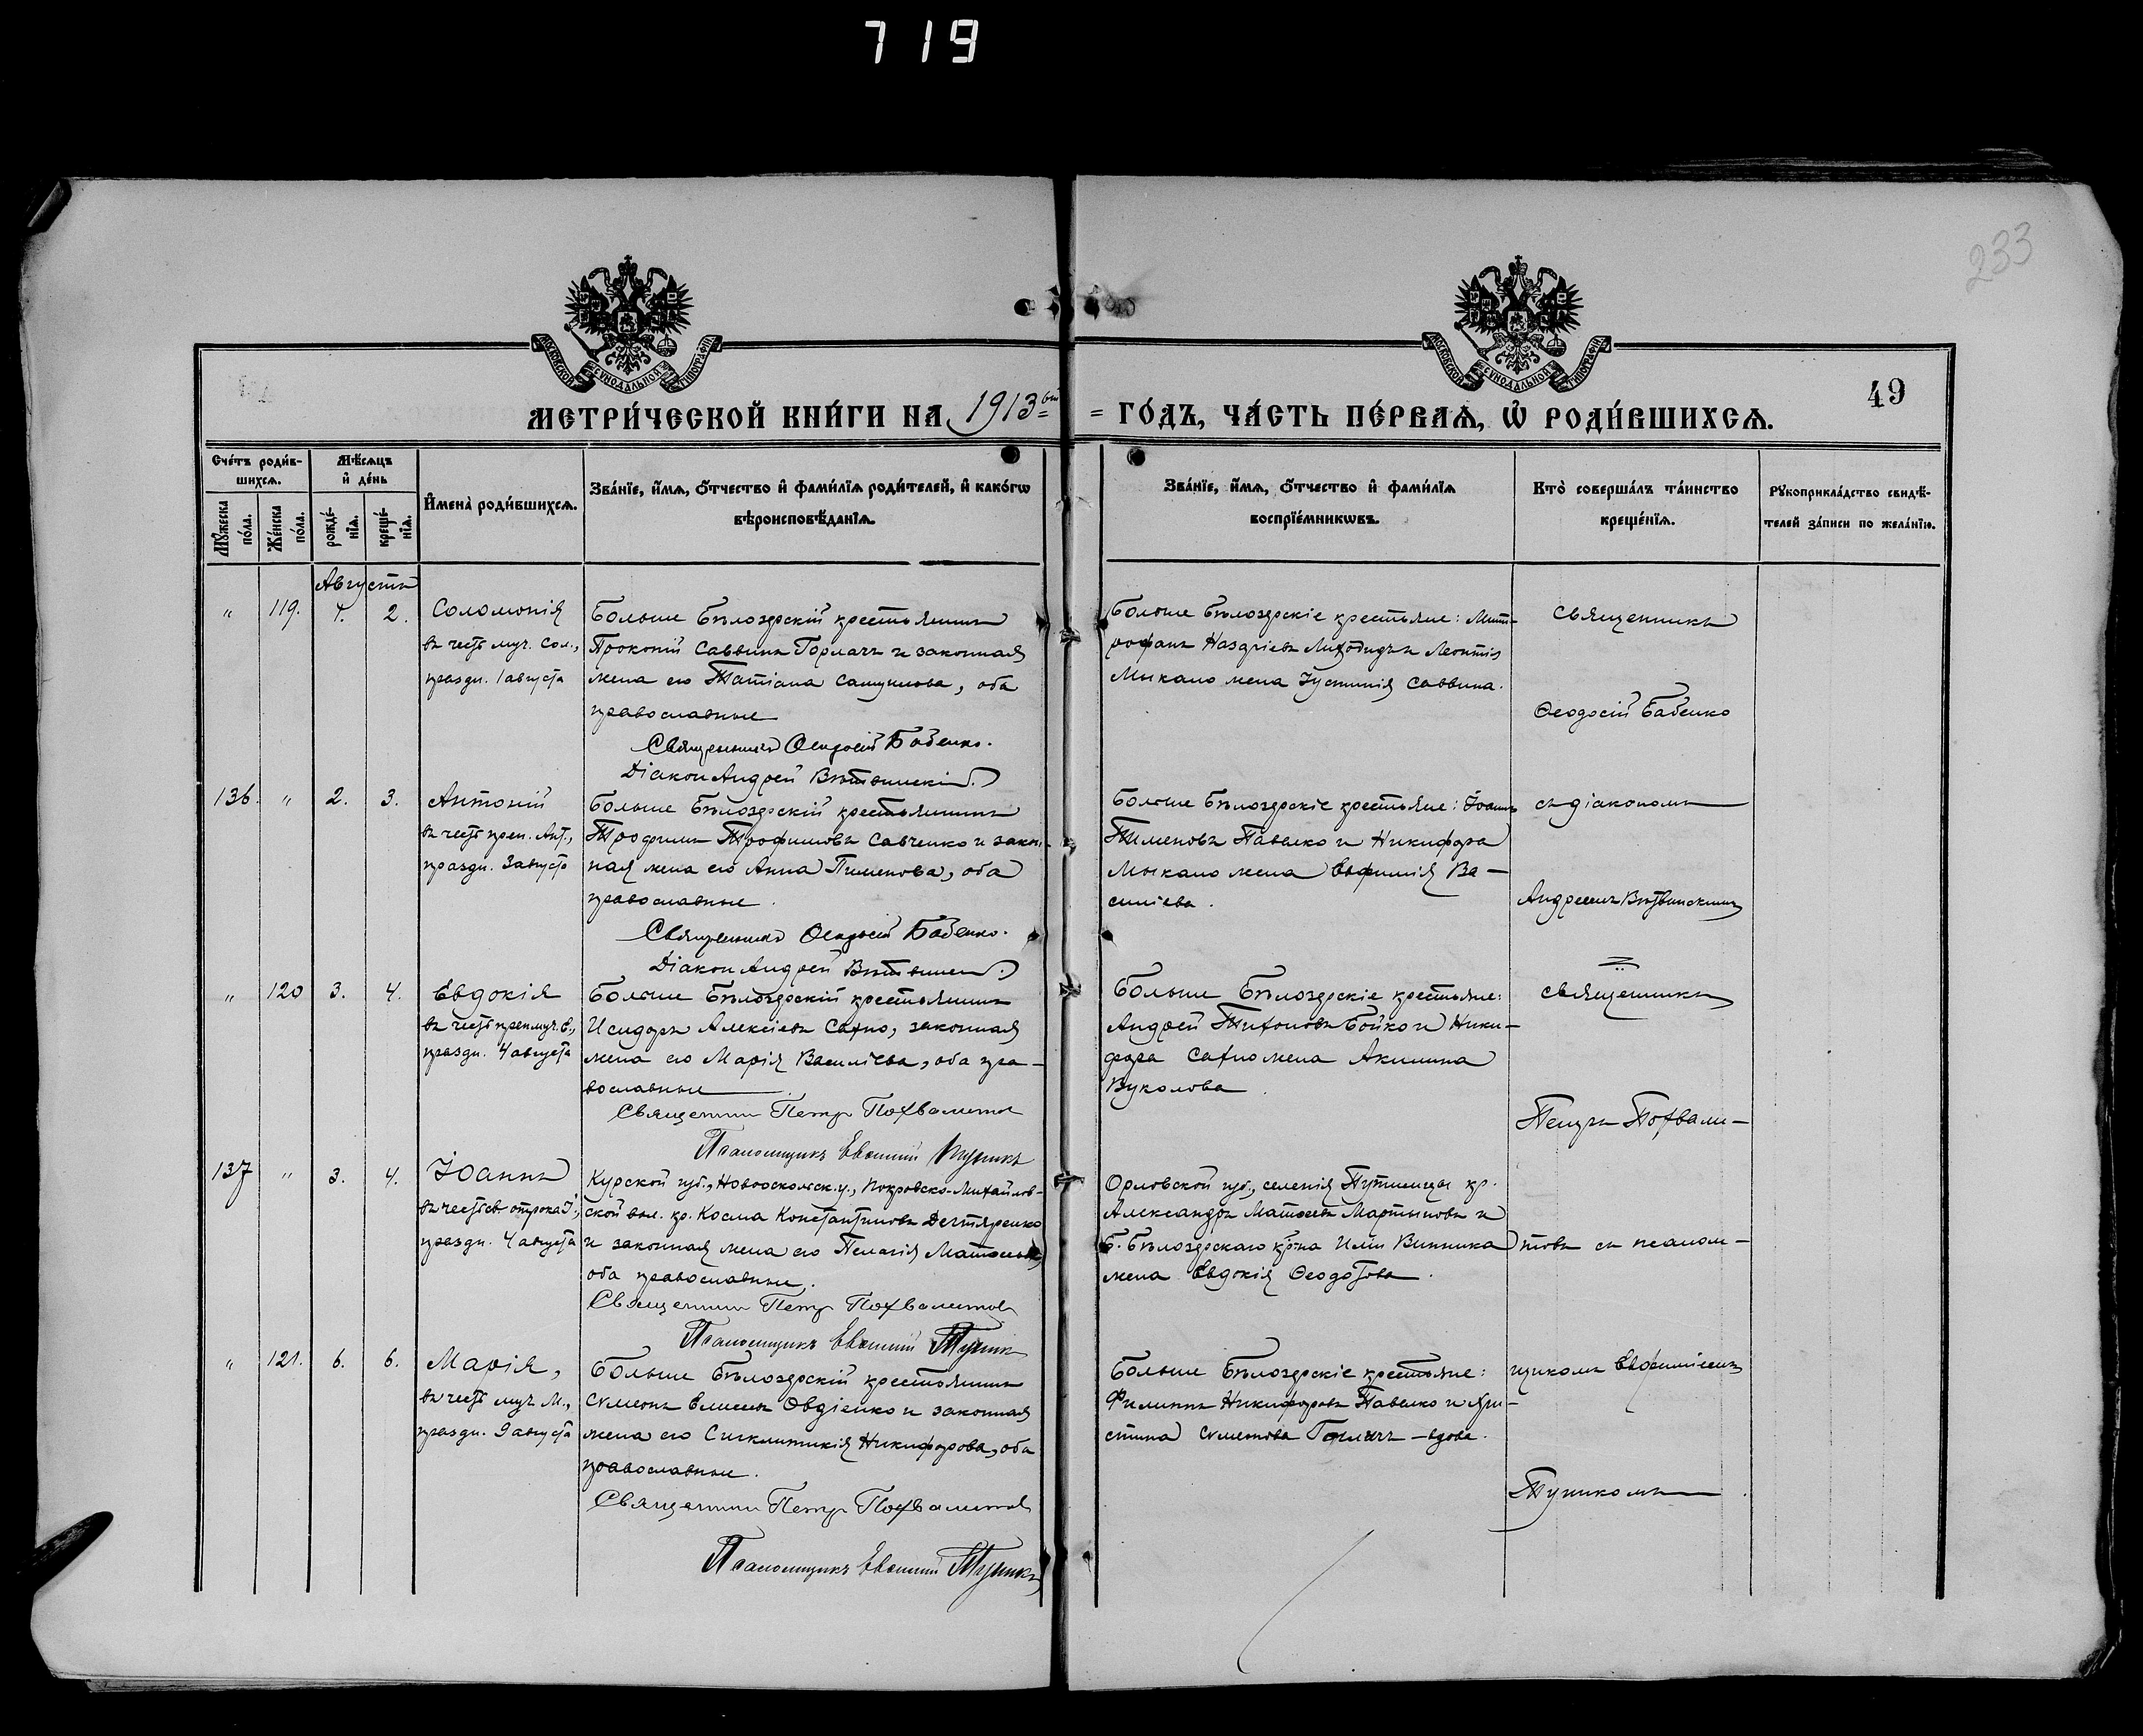 719
233
МОСКОВСКОЙ СѴНОДАЛЬНОЙ ТИПОГРАФІИ
МОСКОВСКОЙ СѴНОДАЛЬНОЙ ТИПОГРАФІИ
49
МЕТРИ́ЧЕСКОЙ КНИ́ГИ НА 1913 = ГО́ДЪ, ЧА́СТЬ ПЕ́РВАѦ, Ѡ҆ РОДИ́ВШИХСѦ.
Сче́тъ роди́в-
шихсѧ.
Мѣ́сѧцъ
и҆ де́нь
Мꙋ́жеска по́ла.
Же́нска по́ла.
рожде́-
нїѧ.
креще́-
нїѧ.
И҆мена̀ роди́вшихсѧ.
Зва́нїе, и҆́мѧ, ѻ҆́тчество и҆ фами́лїѧ роди́телей, и҆ како́гѡ
вѣроисповѣ́данїѧ.
Зва́нїе, и҆́мѧ, ѻ҆́тчество и҆ фами́лїѧ
воспрїе́мникѡвъ.
Кто̀ соверша́лъ та́инство
креще́нїѧ.
Рꙋкоприкла́дство свидѣ́-
телей за́писи по жела́нїю.
Августъ
„ 119. 1. 2.
Соломонія
въ честь муч. Сол.,
праздн. 1 августа
Больше Бѣлозерскій крестьянинъ
Прокопій Саввинъ Горлачъ и законная
жена его Татіана Самуилова, оба
православные
Священникъ Ѳеодосій Бабенко.
Діакон Андрей Вѣтвинскій.
Больше Бѣлозерскіе крестьяне: Мит-
рофанъ и Леонтія
Мыкало жена Іустинія Саввина.
Священникъ
Ѳеодосій Бабенко
136. „ 2. 3.
Антоній
въ честь преп. Ант.,
праздн. 3 августа
Больше Бѣлозерскій крестьянинъ
Трофимъ Трофимовъ Савченко и закон-
ная жена его Анна Пименова, оба
православные.
Священникъ Ѳеодосій Бабенко.
Діакон Андрей
Больше Бѣлозерскіе крестьяне: Іоаннъ
Пименовъ Павелко и Никифора
Мыкало жена Евфимія Ва-
силіева.
съ діакономъ
Андреемъ Вѣтвинскимъ
„ 120 3. 4.
Евдокія
въ честь преп. муч. Е.,
праздн. 4 августа
Больше Бѣлозерскій крестьянинъ
Исидоръ Алексіевъ Сахно, законная
жена его Марія Василіева, оба пра-
вославные
Священник Петр Похвалитов
Псаломщикъ Евфимій Пупикъ
Больше Бѣлозерскіе крестьяне:
Андрей Тихоновъ Бойко и Ники-
фора Сахно жена Акилина
Вуколова.
священникъ
Петръ Похвали-
137 „ 3. 4.
Іоаннъ
въ честь св. отрока І.,
праздн. 4 августа
Курской губ., Новооскольск. у., Покровско-Михайлов-
ской вол. кр. Косма Константиновъ Дегтяренко
и законная жена его Пелагія Матѳеева,
оба православные.
Священник Петр Похвалитов
Псаломщикъ Евфимій Пупикъ
Орловской губ., селенія кр.
Александръ Матѳеевъ Мартыновъ и
Б. Бѣлозерскаго кр-на Иліи Винника
жена Евдокія Ѳеодотова.
товъ съ псалом-
„ 121. 6. 6.
Марія,
въ честь муч. М.,
праздн. 9 августа
Больше Бѣлозерскій крестьянинъ
Сѵмеонъ Елисеевъ Овдіенко и законная
жена его Сигклитикія Никифорова, оба
православные.
Священник Петр Похвалитов
Псаломщикъ Евфимій Пупикъ
Больше Бѣлозерскіе крестьяне:
Филиппъ Никифоровъ Павелко и Хри-
стина Сѵмеонова Горлачъ - вдова.
щикомъ Евфиміемъ
Пупикомъ